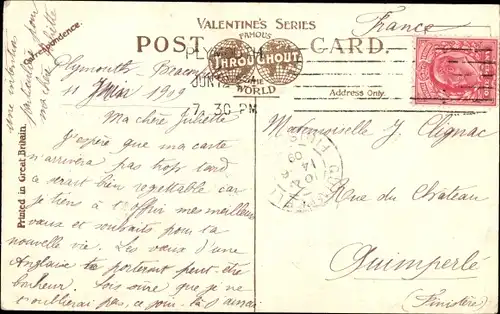 Une invitation
particulière pour
ma chère Juliette
Correspondence.
VALENTINE'S SERIES
FAMOUS
THROUGHOUT
THE
WORLD
POST CARD.
France
Address Only.
PLYMOUTH
JUN 12
7. 30 PM
Plymouth,
11 Juin 1909
Ma chère Juliette
J'espère que ma carte
n'arrivera pas trop tard
ce serait bien regrettable car
je tiens à t'offrir mes meilleurs
vœux et souhaits pour ta
nouvelle vie. Les vœux d'une
Anglaise te porteront peut-être
bonheur. Sois sûre que je ne
t'oublierai pas, ce jour-là
Printed in Great Britain.
Mademoiselle J. Clignac
Rue du Château
Quimperlé
(Finistère)